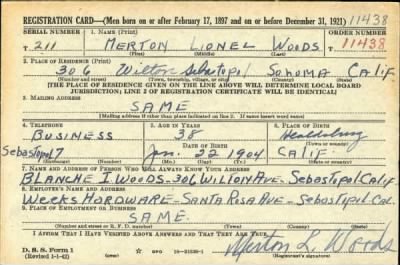 REGISTRATION CARD—(Men born on or after February 17, 1897 and on or before December 31, 1921) 11438
SERIAL NUMBER 1. NAME (Print) ORDER NUMBER
T 211 MERTON LIONEL WOODS 11438
2. PLACE OF RESIDENCE (Print)
306 Wilton Sebastopol Sonoma Calif.
(Number and street) (Town, township, village, or city) (County) (State)
[THE PLACE OF RESIDENCE GIVEN ON THE LINE ABOVE WILL DETERMINE LOCAL BOARD
JURISDICTION; LINE 2 OF REGISTRATION CERTIFICATE WILL BE IDENTICAL]
3. MAILING ADDRESS
SAME
[Mailing address if other than place indicated on line 2. If same insert word same]
4. TELEPHONE 5. AGE IN YEARS 6. PLACE OF BIRTH
BUSINESS 38 Healdsburg
DATE OF BIRTH (Town or county)
Sebastopol 7 Jan. 22 1904 CALIF
(Exchange) (Number) (Mo.) (Day) (Yr.) (State or country)
7. NAME AND ADDRESS OF PERSON WHO WILL ALWAYS KNOW YOUR ADDRESS
BLANCHE I WOODS - 306 WILTON AVE. SEBASTOPOL CALIF.
8. EMPLOYER'S NAME AND ADDRESS
WEEKS HARDWARE - SANTA ROSA AVE - SEBASTOPOL CAL.
9. PLACE OF EMPLOYMENT OR BUSINESS
SAME.
(Number and street or R. F. D. number) (Town) (County) (State)
I AFFIRM THAT I HAVE VERIFIED ABOVE ANSWERS AND THAT THEY ARE TRUE.
D. S. S. Form 1
(Revised 1-1-42) GPO Merton L Woods
(Registrant's signature)